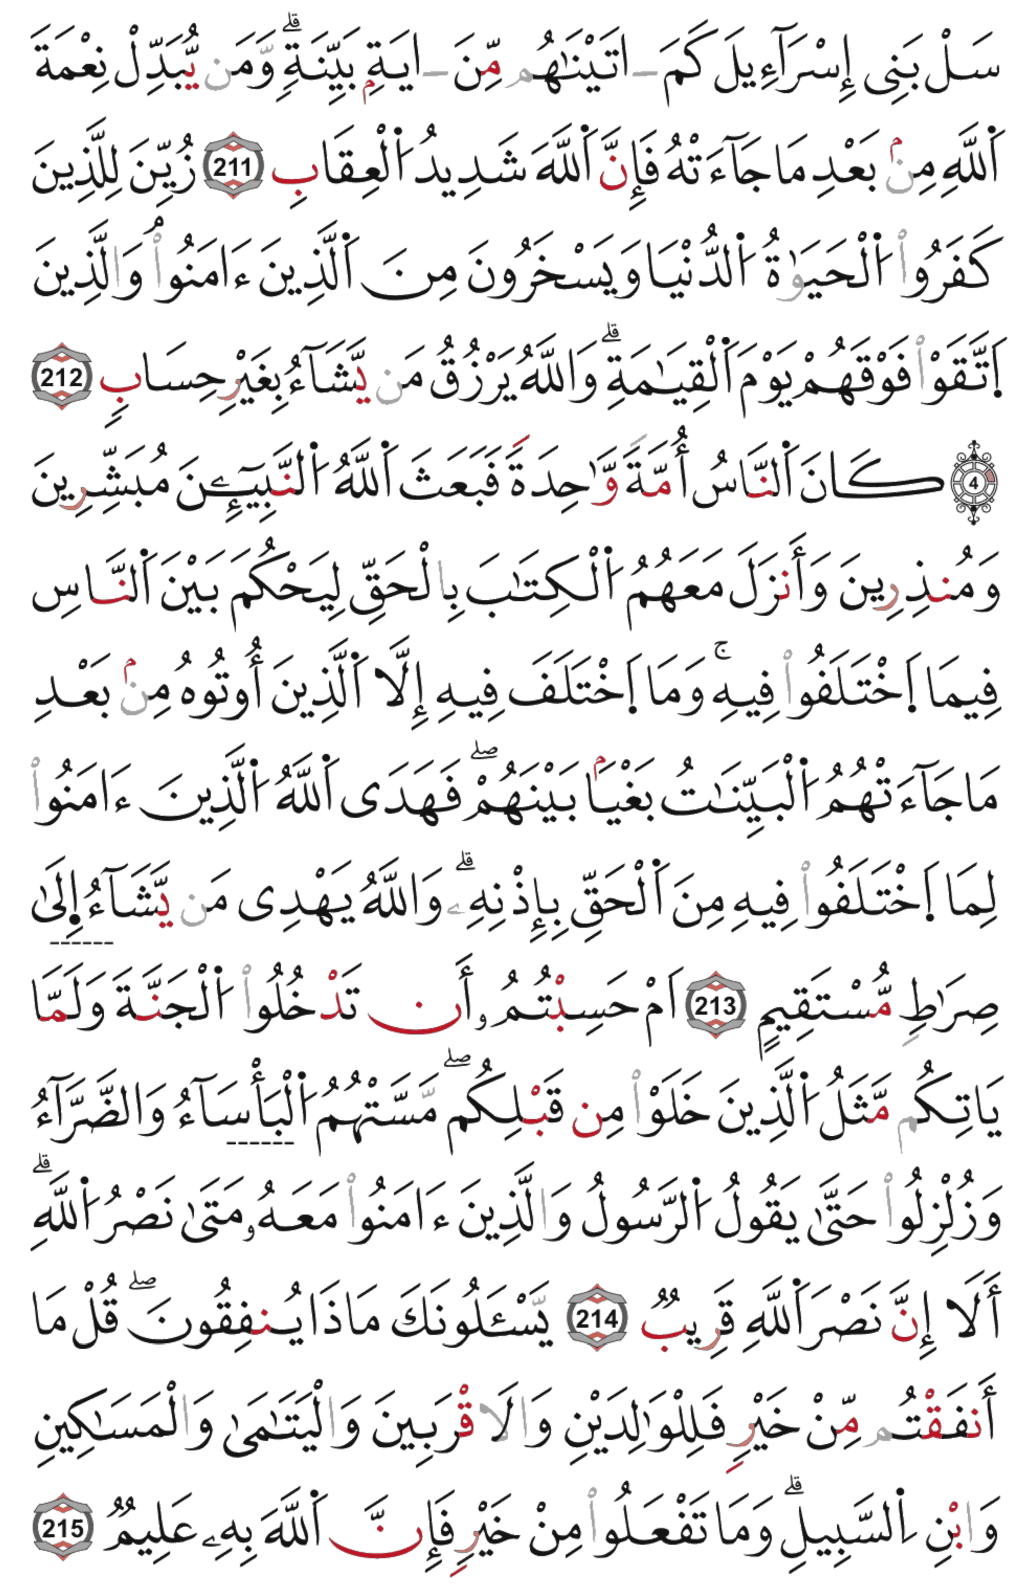 سَلْ بَنِى إِسْرَآءِيلَ كَمَ ـ اتَيْنَـٰهُم مِّنَ ـ ايَةِۭ بَيِّنَةٍۖ وَّمَن يُّبَدِّلْ نِعْمَةَ
اَ۬للَّهِ مِنۢ بَعْدِ مَا جَآءَتْهُ فَإِنَّ اَ۬للَّهَ شَدِيدُ اُ۬لْعِقَابِ 211 زُيِّنَ لِلَّذِينَ
كَفَرُواْ اُ۬لْحَيَوٰةُ اُ۬لدُّنْيَا وَيَسْخَرُونَ مِنَ اَ۬لَّذِينَ ءَامَنُواْۘ وَالَّذِينَ
اَ۪تَّقَوْاْ فَوْقَهُمْ يَوْمَ اَ۬لْقِيَـٰمَةِۖ وَاللَّهُ يَرْزُقُ مَن يَّشَآءُ بِغَيْرِ حِسَابٍ 212
4 كَانَ اَ۬لنَّاسُ أُمَّةً وَّٰحِدَةً فَبَعَثَ اَ۬للَّهُ اُ۬لنَّبِيٓـِٕينَ مُبَشِّرِينَ
وَمُنذِرِينَ وَأَنزَلَ مَعَهُمُ اُ۬لْكِتَـٰبَ بِالْحَقِّ لِيَحْكُمَ بَيْنَ اَ۬لنَّاسِ
فِيمَا اَ۪خْتَلَفُواْ فِيهِۚ وَمَا اَ۪خْتَلَفَ فِيهِ إِلَّا اَ۬لَّذِينَ أُوتُوهُ مِنۢ بَعْدِ
مَا جَآءَتْهُمُ اُ۬لْبَيِّنَـٰتُ بَغْيَاۢ بَيْنَهُمْۖ فَهَدَى اَ۬للَّهُ اُ۬لَّذِينَ ءَامَنُواْ
لِمَا اَ۪خْتَلَفُواْ فِيهِ مِنَ اَ۬لْحَقِّ بِإِذْنِهِۦۖ وَاللَّهُ يَهْدِى مَن يَّشَآءُ إِلَىٰ
صِرَٰطٍ مُّسْتَقِيمٍ 213 اَمْ حَسِبْتُمُۥ أَن تَدْخُلُواْ اُ۬لْجَنَّةَ وَلَمَّا
يَاتِكُم مَّثَلُ اُ۬لَّذِينَ خَلَوْاْ مِن قَبْلِكُمۖ مَّسَّتْهُمُ اُ۬لْبَأْسَآءُ وَالضَّرَّآءُ
وَزُلْزِلُواْ حَتَّىٰ يَقُولُ اُ۬لرَّسُولُ وَالَّذِينَ ءَامَنُواْ مَعَهُۥ مَتَىٰ نَصْرُ اُ۬للَّهِۖ
أَلَا إِنَّ نَصْرَ اَ۬للَّهِ قَرِيبٌ 214 يَسْـَٔلُونَكَ مَاذَا يُنفِقُونَۖ قُلْ مَا
أَنفَقْتُم مِّنْ خَيْرٍ فَلِلْوَٰلِدَيْنِ وَالَاقْرَبِينَ وَالْيَتَـٰمَىٰ وَالْمَسَـٰكِينِ
وَابْنِ اِ۬لسَّبِيلِۖ وَمَا تَفْعَلُواْ مِنْ خَيْرٍ فَإِنَّ اَ۬للَّهَ بِهِۦ عَلِيمٌ 215